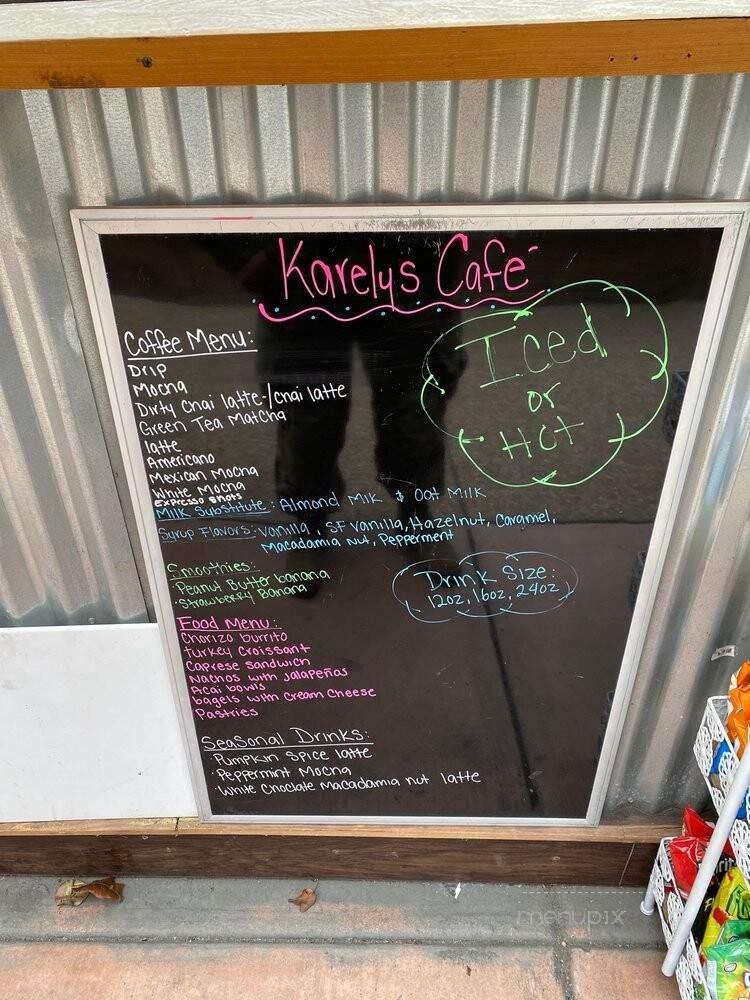 Karelys Café
Iced
or
Hot
Coffee Menu:
Drip
Mocha
Dirty chai latte-/chai latte
Green Tea Matcha
latte
Americano
Mexican Mocha
White Mocha
Expresso shots
Milk Substitute: Almond Milk & Oat Milk
Syrup Flavors: vanilla, SF vanilla, Hazelnut, Caramel,
Macadamia Nut, Pepperment
Smoothies:
·Peanut Butter banana
·Strawberry Banana
Drink Size:
12oz, 16oz, 24oz
Food Menu:
Chorizo burrito
turkey croissant
Caprese sandwich
Nachos with jalapeñas
Acai bowls
bagels with cream cheese
Pastries
Seasonal Drinks:
·Pumpkin Spice latte
·Peppermint Mocha
·White Choclate Macadamia nut latte
menupix